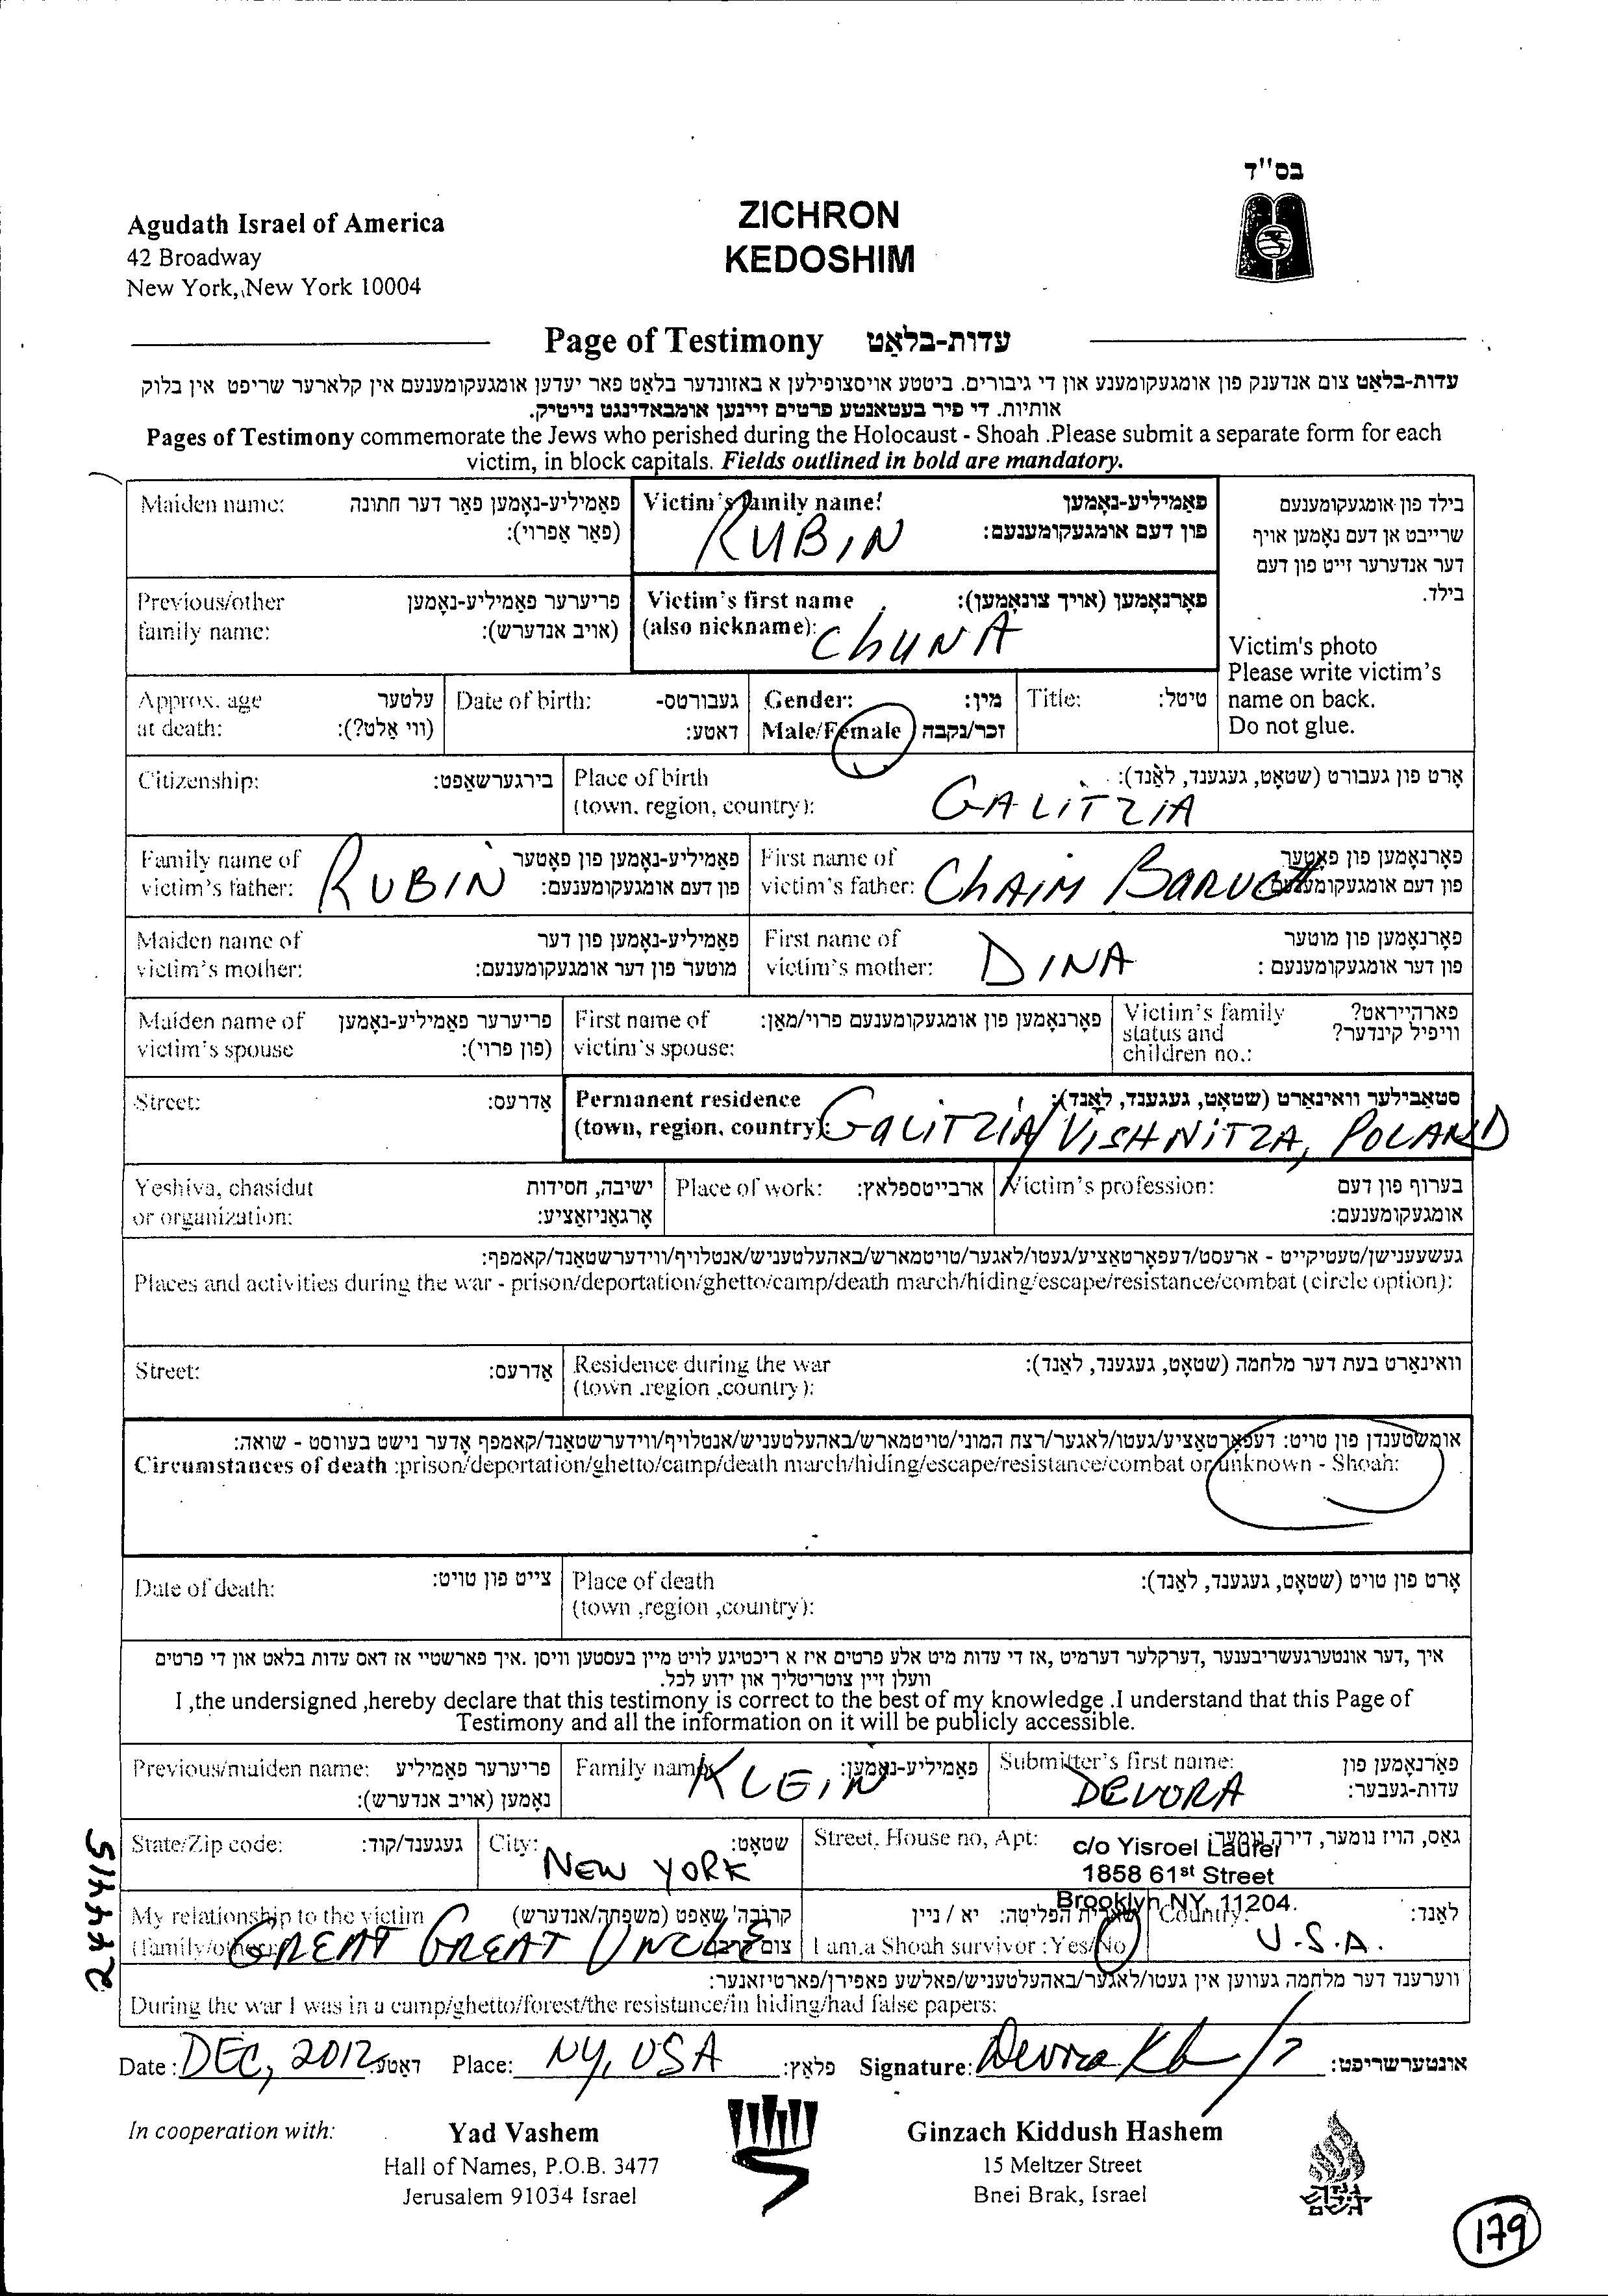 בס"ד
Agudath Israel of America
42 Broadway
New York, New York 10004
ZICHRON
KEDOSHIM
Page of Testimony עדות-בלאַט
עדות-בלאַט צום אנדענק פון אומגעקומענע און די גיבורים. ביטטע אויסצופילען א באזונדער בלאט פאר יעדען אומגעקומענעם אין קלארער שריפט אין בלוק
אותיות. די פיר בעטאנטע פרטים זיינען אומבאדינגט נייטיק.
Pages of Testimony commemorate the Jews who perished during the Holocaust - Shoah .Please submit a separate form for each
victim, in block capitals. Fields outlined in bold are mandatory.
Maiden name: פאַמיליע-נאָמען פאַר דער חתונה
(פאַר אַפרוי):
Victim's family name: פאַמיליע-נאָמען
פון דעם אומגעקומענעם:
RUBIN
בילד פון אומגעקומענעם
שרייבט אן דעם נאָמען אויף
דער אנדערער זייט פון דעם
בילד.
Victim's photo
Please write victim's
name on back.
Do not glue.
Previous/other פריערער פאַמיליע-נאָמען
family name: (אויב אנדערש):
Victim's first name פאָרנאָמען (אויך צונאָמען):
(also nickname): CHUNA
Approx. age עלטער
at death: (ווי אַלט?):
Date of birth: געבורטס-
דאטע:
Gender: מין:
Male/Female זכר/נקבה
Title: טיטל:
Citizenship: בירגערשאַפט:
Place of birth אָרט פון געבורט (שטאָט, געגענד, לאַנד):
(town, region, country): GALITZIA
Family name of פאַמיליע-נאָמען פון פאָטער
victim's father: RUBIN פון דעם אומגעקומענעם:
First name of פאָרנאָמען פון פאָטער
victim's father: CHAIM BARUCH פון דעם אומגעקומענעם
Maiden name of פאַמיליע-נאָמען פון דער
victim's mother: מוטער פון דער אומגעקומענעם:
First name of פאָרנאָמען פון מוטער
victim's mother: DINA פון דער אומגעקומענעם :
Maiden name of פריערער פאַמיליע-נאָמען
victim's spouse (פון פרוי):
First name of פאָרנאָמען פון אומגעקומענעם פרוי/מאַן:
victim's spouse:
Victim's family פארהייראט?
status and וויפיל קינדער?
children no.:
Street: אַדרעס:
Permanent residence סטאַבילער וואוינאָרט (שטאָט, געגענד, לאַנד):
(town, region, country): GALITZIA/VISHNITZA, POLAND
Yeshiva, chasidut ישיבה, חסידות
or organization: אָרגאַניזאַציע:
Place of work: ארבייטספלאַץ:
Victim's profession: בערוף פון דעם
אומגעקומענעם:
געשעענישן/טעטיקייט - ארעסט/דעפאָרטאַציע/געטו/לאַגער/טויטמארש/באַהעלטעניש/אנטלויף/ווידערשטאַנד/קאמפף:
Places and activities during the war - prison/deportation/ghetto/camp/death march/hiding/escape/resistance/combat (circle option):
Street: אַדרעס:
Residence during the war וואוינאָרט בעת דער מלחמה (שטאָט, געגענד, לאַנד):
(town ,region ,country):
אומשטענדן פון טויט: דעפאָרטאַציע/געטו/לאַגער/רצח המוני/טויטמארש/באַהעלטעניש/אנטלויף/ווידערשטאַנד/קאמפף אָדער נישט בעוווסט - שואה:
Circumstances of death :prison/deportation/ghetto/camp/death march/hiding/escape/resistance/combat or unknown - Shoah:
Date of death: צייט פון טויט:
Place of death אָרט פון טויט (שטאָט, געגענד, לאַנד):
(town ,region ,country):
איך ,דער אונטערגעשריבענער ,דערקלער דערמיט ,אז די עדות מיט אלע פרטים איז א ריכטיגע לויט מיין בעסטען וויסן .איך פארשטיי אז דאס עדות בלאט און די פרטים
וועלן זיין צוטריטליך און ידוע לכל.
I ,the undersigned ,hereby declare that this testimony is correct to the best of my knowledge .I understand that this Page of
Testimony and all the information on it will be publicly accessible.
Previous/maiden name: פריערער פאַמיליע
נאָמען (אויב אנדערש):
Family name: KLEIN פאַמיליע-נאָמען:
Submitter's first name: פאָרנאָמען פון
DEVORA עדות-געבער:
State/Zip code: געגענד/קוד:
City: שטאָט:
NEW YORK
Street, House no, Apt: גאַס, הויז נומער, דירה נומער:
c/o Yisroel Laufer
1858 61st Street
Brooklyn NY, 11204.
My relationship to the victim קרובה'שאַפט (משפחה/אנדערש)
(family/other): GREAT GREAT UNCLE
שארית הפליטה: יא / ניין
I am a Shoah survivor : Yes/No
Country: לאַנד:
U.S.A.
ווערענד דער מלחמה געווען אין געטו/לאַגער/באַהעלטעניש/פאלשע פאפירן/פארטיזאנער:
During the war I was in a camp/ghetto/forest/the resistance/in hiding/had false papers:
Date : DEC, 2012 דאַטע Place: NY, USA פלאַץ: Signature: אונטערשריפט:
In cooperation with:
Yad Vashem
Hall of Names, P.O.B. 3477
Jerusalem 91034 Israel
Ginzach Kiddush Hashem
15 Meltzer Street
Bnei Brak, Israel
179